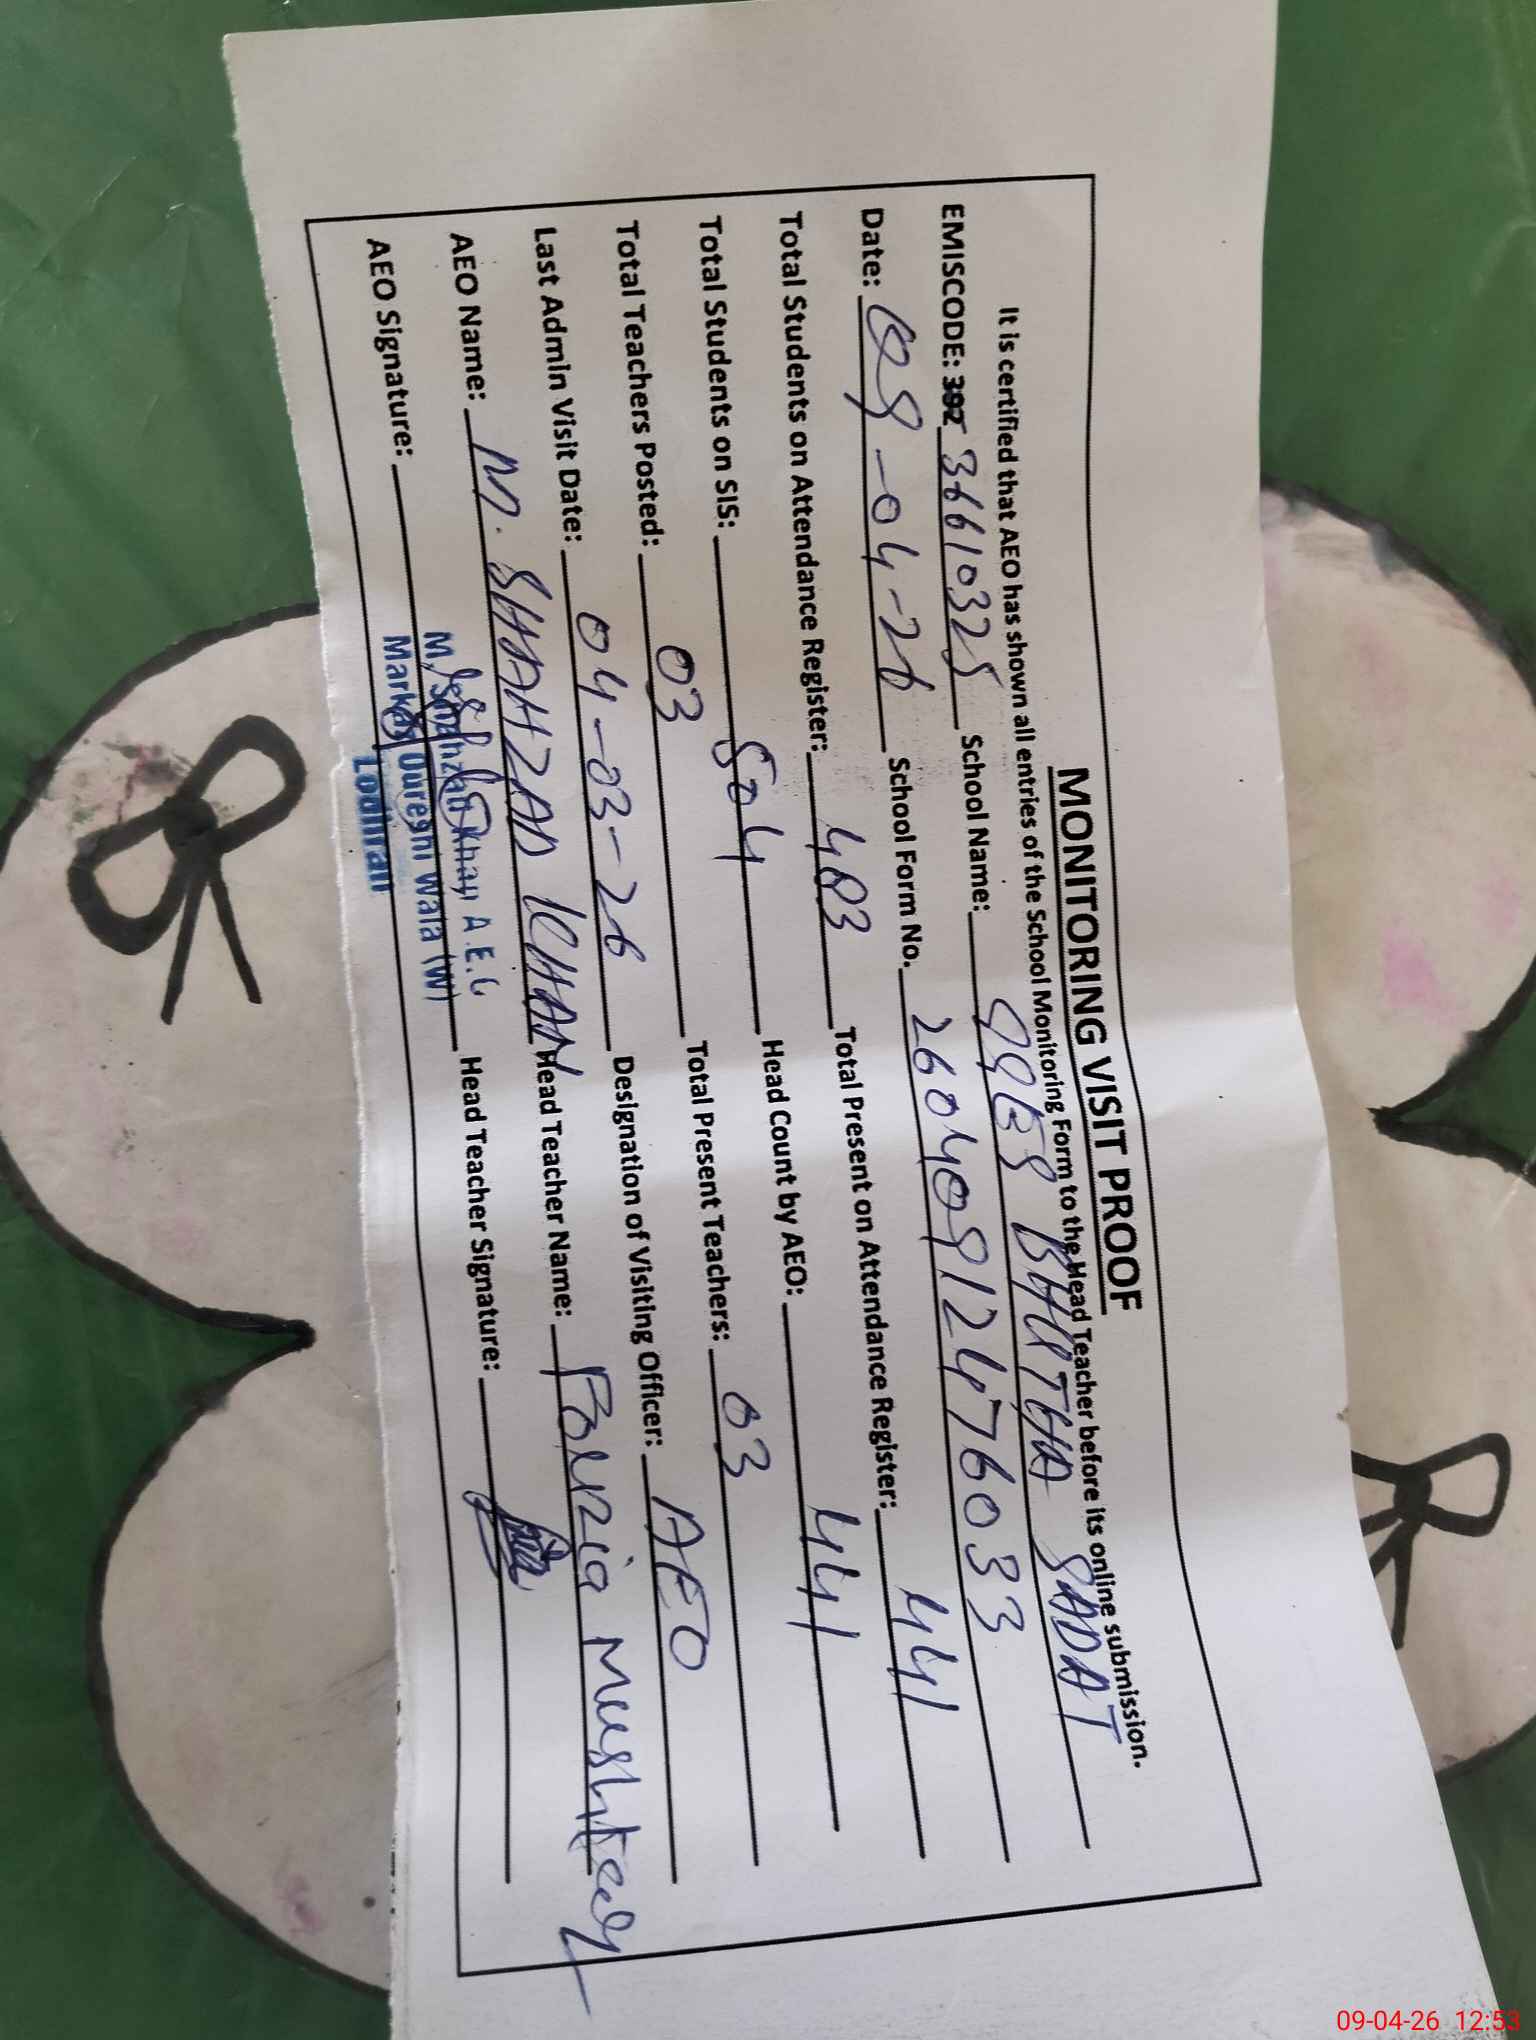 MONITORING VISIT PROOF
It is certified that AEO has shown all entries of the School Monitoring Form to the Head Teacher before its online submission.
EMISCODE: 392 36610325 School Name: GGES BHUTHA SADAT
Date: 09-04-26 School Form No. 26040912476033
Total Students on Attendance Register: 483 Total Present on Attendance Register: 441
Total Students on SIS: 504 Head Count by AEO: 441
Total Teachers Posted: 03 Total Present Teachers: 03
Last Admin Visit Date: 04-03-26 Designation of Visiting Officer: AEO
AEO Name: M. SHAHZAD KHAN Head Teacher Name: Fouzia Mushtaq
AEO Signature: Head Teacher Signature:
M. Shahzad Khan A.E.O
Markaz Qureshi Wala (W)
Lodhran
09-04-26 12:53